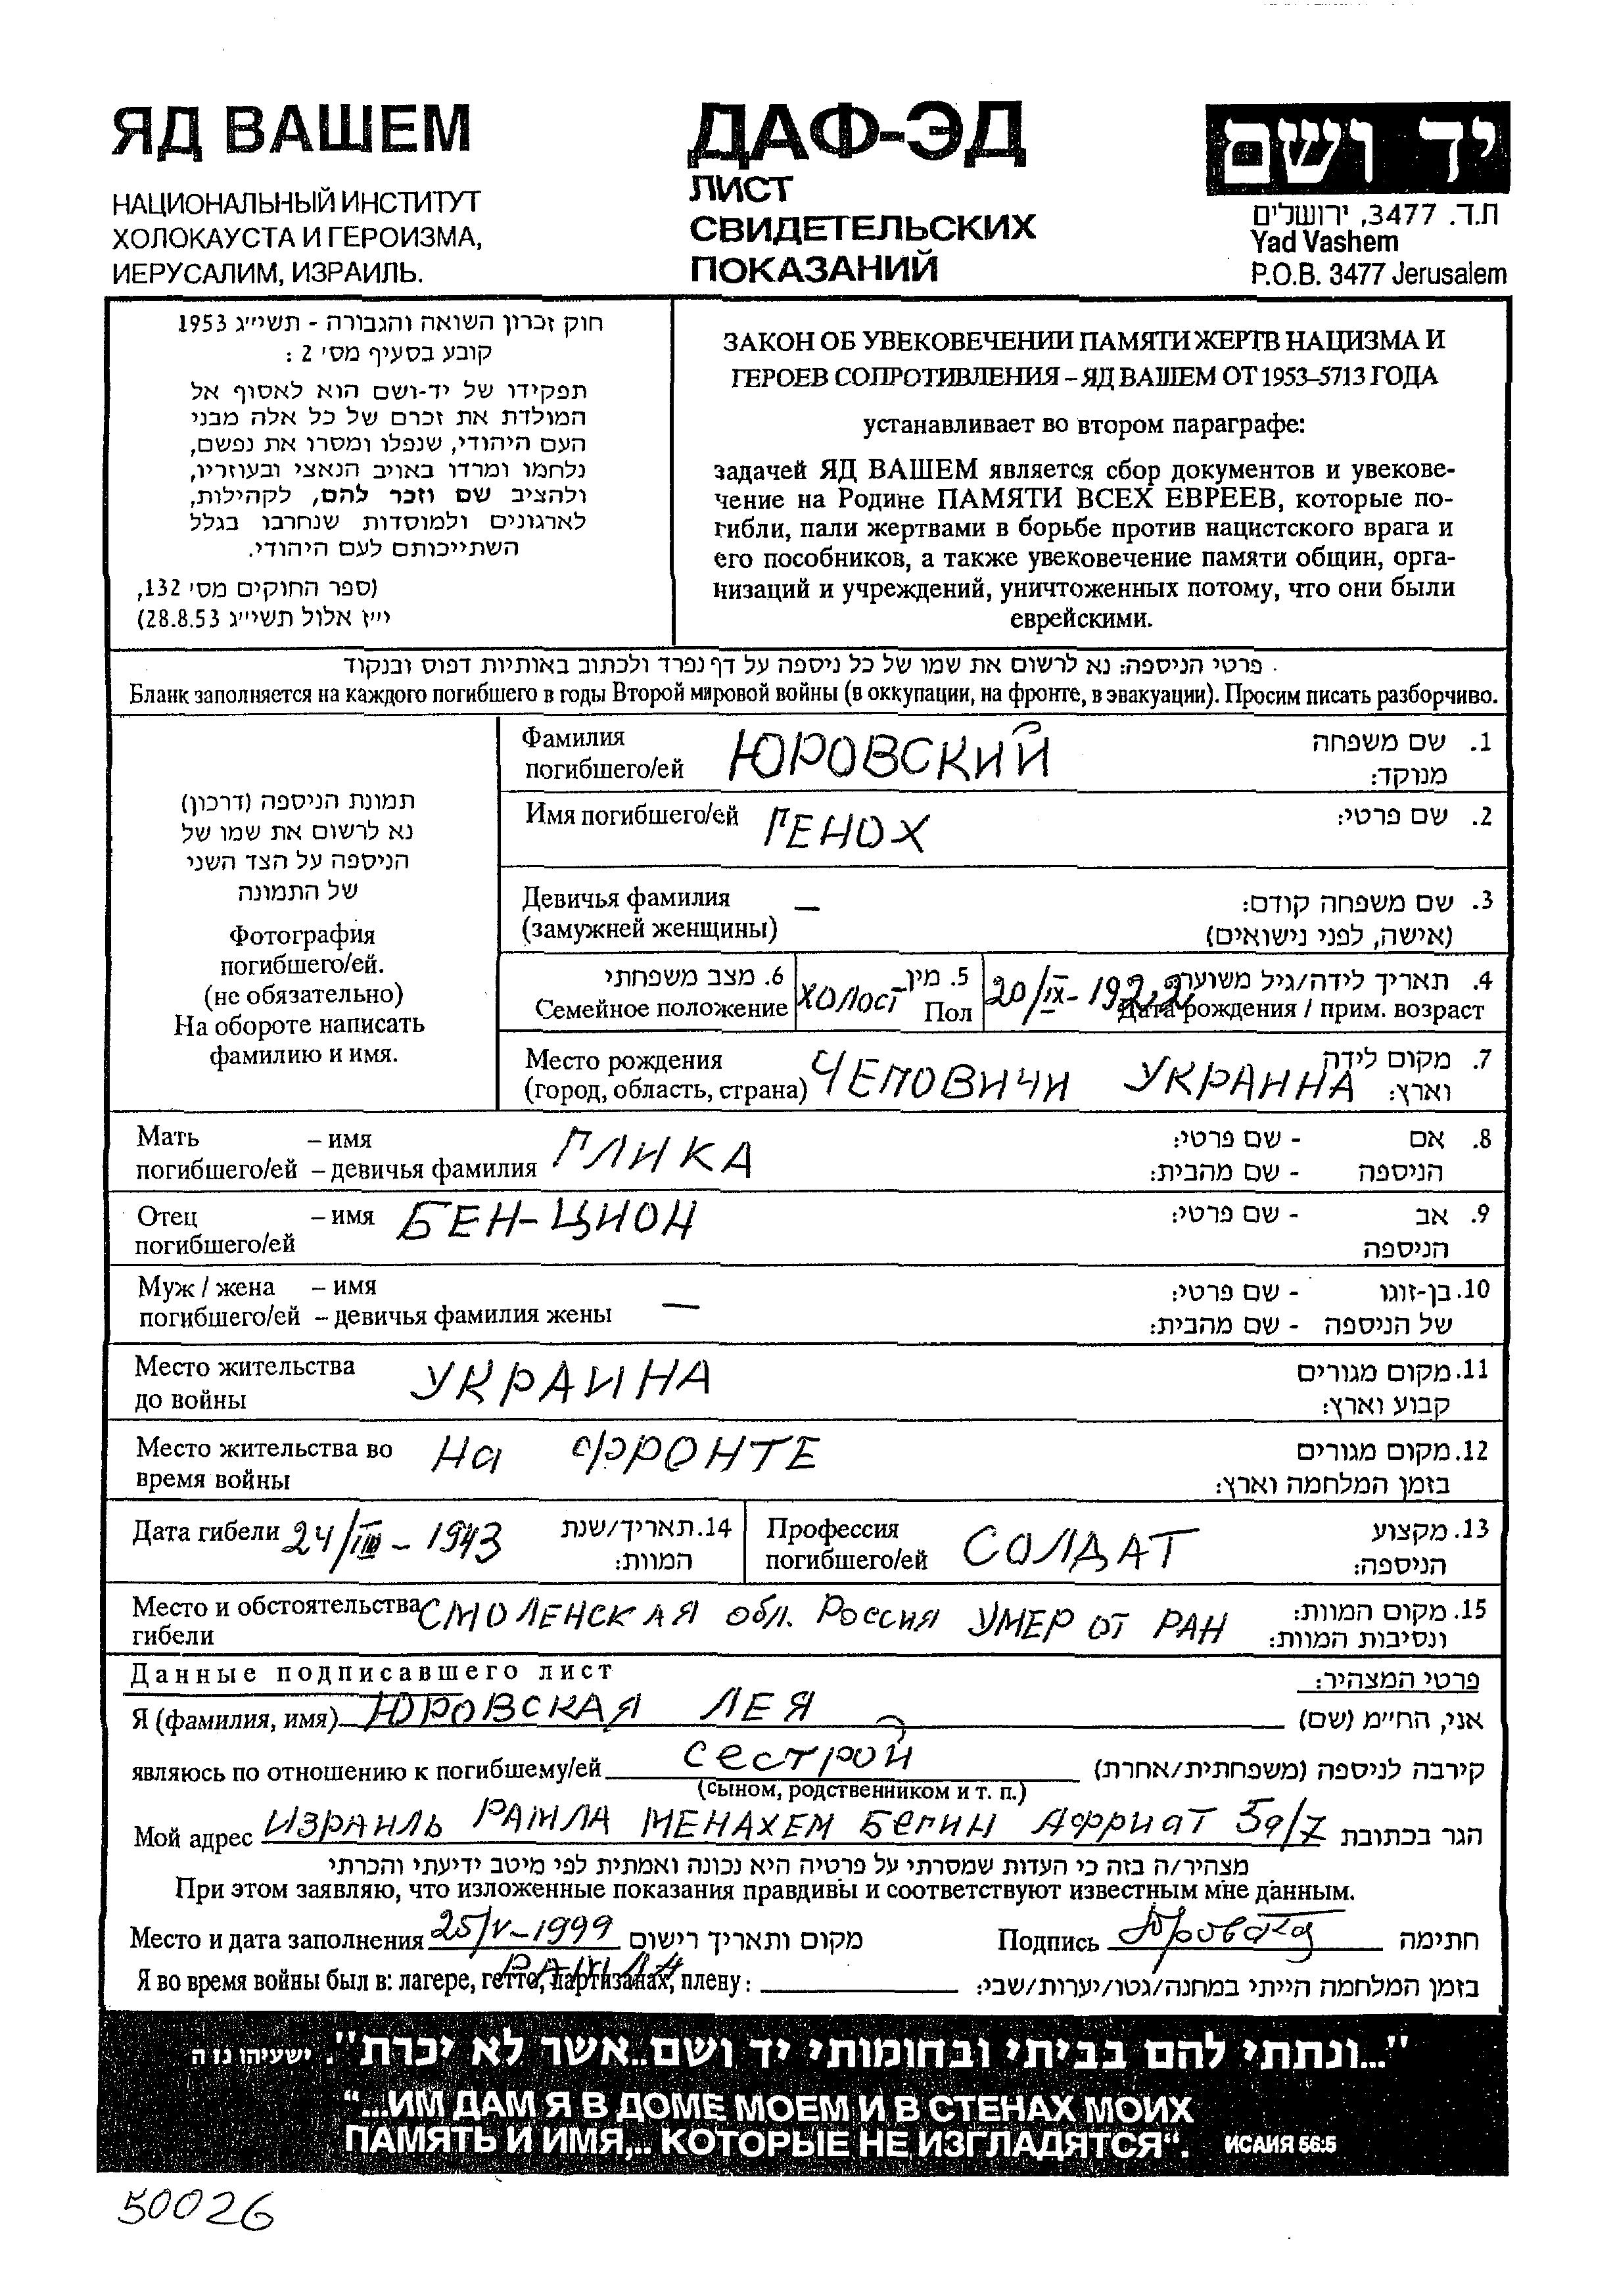 ЯД ВАШЕМ
НАЦИОНАЛЬНЫЙ ИНСТИТУТ
ХОЛОКАУСТА И ГЕРОИЗМА,
ИЕРУСАЛИМ, ИЗРАИЛЬ.
ДАФ-ЭД
ЛИСТ
СВИДЕТЕЛЬСКИХ
ПОКАЗАНИЙ
יד ושם
ת.ד. 3477, ירושלים
Yad Vashem
P.O.B. 3477 Jerusalem
חוק זכרון השואה והגבורה - תשי״ג 1953
קובע בסעיף מס׳ 2 :
תפקידו של יד-ושם הוא לאסוף אל
המולדת את זכרם של כל אלה מבני
העם היהודי, שנפלו ומסרו את נפשם,
נלחמו ומרדו באויב הנאצי ובעוזריו,
ולהציב שם וזכר להם, לקהילות,
לארגונים ולמוסדות שנחרבו בגלל
השתייכותם לעם היהודי.
(ספר החוקים מס׳ 132,
י״ז אלול תשי״ג 28.8.53)
ЗАКОН ОБ УВЕКОВЕЧЕНИИ ПАМЯТИ ЖЕРТВ НАЦИЗМА И
ГЕРОЕВ СОПРОТИВЛЕНИЯ – ЯД ВАШЕМ ОТ 1953–5713 ГОДА
устанавливает во втором параграфе:
задачей ЯД ВАШЕМ является сбор документов и увекове-
чение на Родине ПАМЯТИ ВСЕХ ЕВРЕЕВ, которые по-
гибли, пали жертвами в борьбе против нацистского врага и
его пособников, а также увековечение памяти общин, орга-
низаций и учреждений, уничтоженных потому, что они были
еврейскими.
פרטי הניספה: נא לרשום את שמו של כל ניספה על דף נפרד ולכתוב באותיות דפוס ובנקוד
Бланк заполняется на каждого погибшего в годы Второй мировой войны (в оккупации, на фронте, в эвакуации). Просим писать разборчиво.
תמונת הניספה (דרכון)
נא לרשום את שמו של
הניספה על הצד השני
של התמונה
Фотография
погибшего/ей.
(не обязательно)
На обороте написать
фамилию и имя.
Фамилия ЮРОВСКИЙ 1. שם משפחה
погибшего/ей מנוקד:
Имя погибшего/ей ГЕНОХ 2. שם פרטי:
Девичья фамилия — 3. שם משפחה קודם:
(замужней женщины) (אישה, לפני נישואים)
6. מצב משפחתי 5. מין 4. תאריך לידה/גיל משוער:
Семейное положение ХОЛОСТ Пол 20/IX-1922 Дата рождения / прим. возраст
Место рождения ЧЕПОВИЧИ УКРАИНА 7. מקום לידה
(город, область, страна) וארץ:
Мать – имя ГЛИКА 8. אם - שם פרטי:
погибшего/ей – девичья фамилия הניספה - שם מהבית:
Отец – имя БЕН-ЦИОН 9. אב - שם פרטי:
погибшего/ей הניספה
Муж / жена – имя 10. בן-זוגו - שם פרטי:
погибшего/ей – девичья фамилия жены — של הניספה - שם מהבית:
Место жительства УКРАИНА 11. מקום מגורים
до войны קבוע וארץ:
Место жительства во На ФРОНТЕ 12. מקום מגורים
время войны בזמן המלחמה וארץ:
Дата гибели 24/III-1943 14. תאריך/שנת
המוות:
Профессия СОЛДАТ 13. מקצוע
погибшего/ей הניספה:
Место и обстоятельства СМОЛЕНСКАЯ обл. Россия УМЕР ОТ РАН 15. מקום המוות:
гибели ונסיבות המוות:
Данные подписавшего лист פרטי המצהיר:
Я (фамилия, имя) ЮРОВСКАЯ ЛЕЯ אני, החי״מ (שם)
являюсь по отношению к погибшему/ей сестрой קירבה לניספה (משפחתית/אחרת)
(сыном, родственником и т. п.)
Мой адрес ИЗРАИЛЬ РАМЛА МЕНАХЕМ БЕГИН АФРИАТ 59/7 הגר בכתובת
מצהיר/ה בזה כי העדות שמסרתי על פרטיה היא נכונה ואמתית לפי מיטב ידיעתי והכרתי
При этом заявляю, что изложенные показания правдивы и соответствуют известным мне данным.
Место и дата заполнения 25/V-1999 מקום ותאריך רישום Подпись Юровская חתימה
РАМЛА
Я во время войны был в: лагере, гетто, партизанах, плену: בזמן המלחמה הייתי במחנה/גטו/יערות/שבי:
"...ונתתי להם בביתי ובחומותי יד ושם..אשר לא יכרת". ישעיהו נו ה
“...ИМ ДАМ Я В ДОМЕ МОЕМ И В СТЕНАХ МОИХ
ПАМЯТЬ И ИМЯ,.. КОТОРЫЕ НЕ ИЗГЛАДЯТСЯ“. ИСАИЯ 56:5
50026